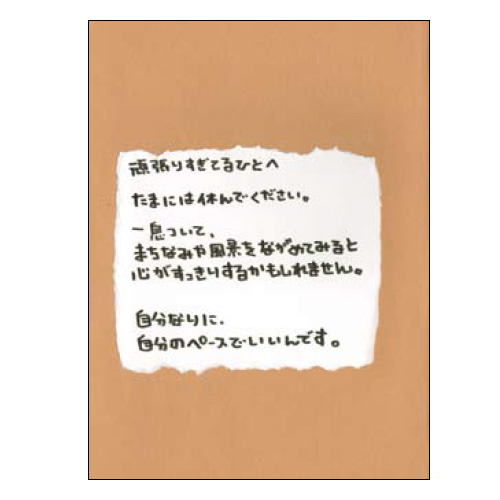 頑張りすぎてるひとへ
たまには休んでください。
一息ついて、
まちなみや風景をながめてみると
心がすっきりするかもしれません。
自分なりに、
自分のペースでいいんです。